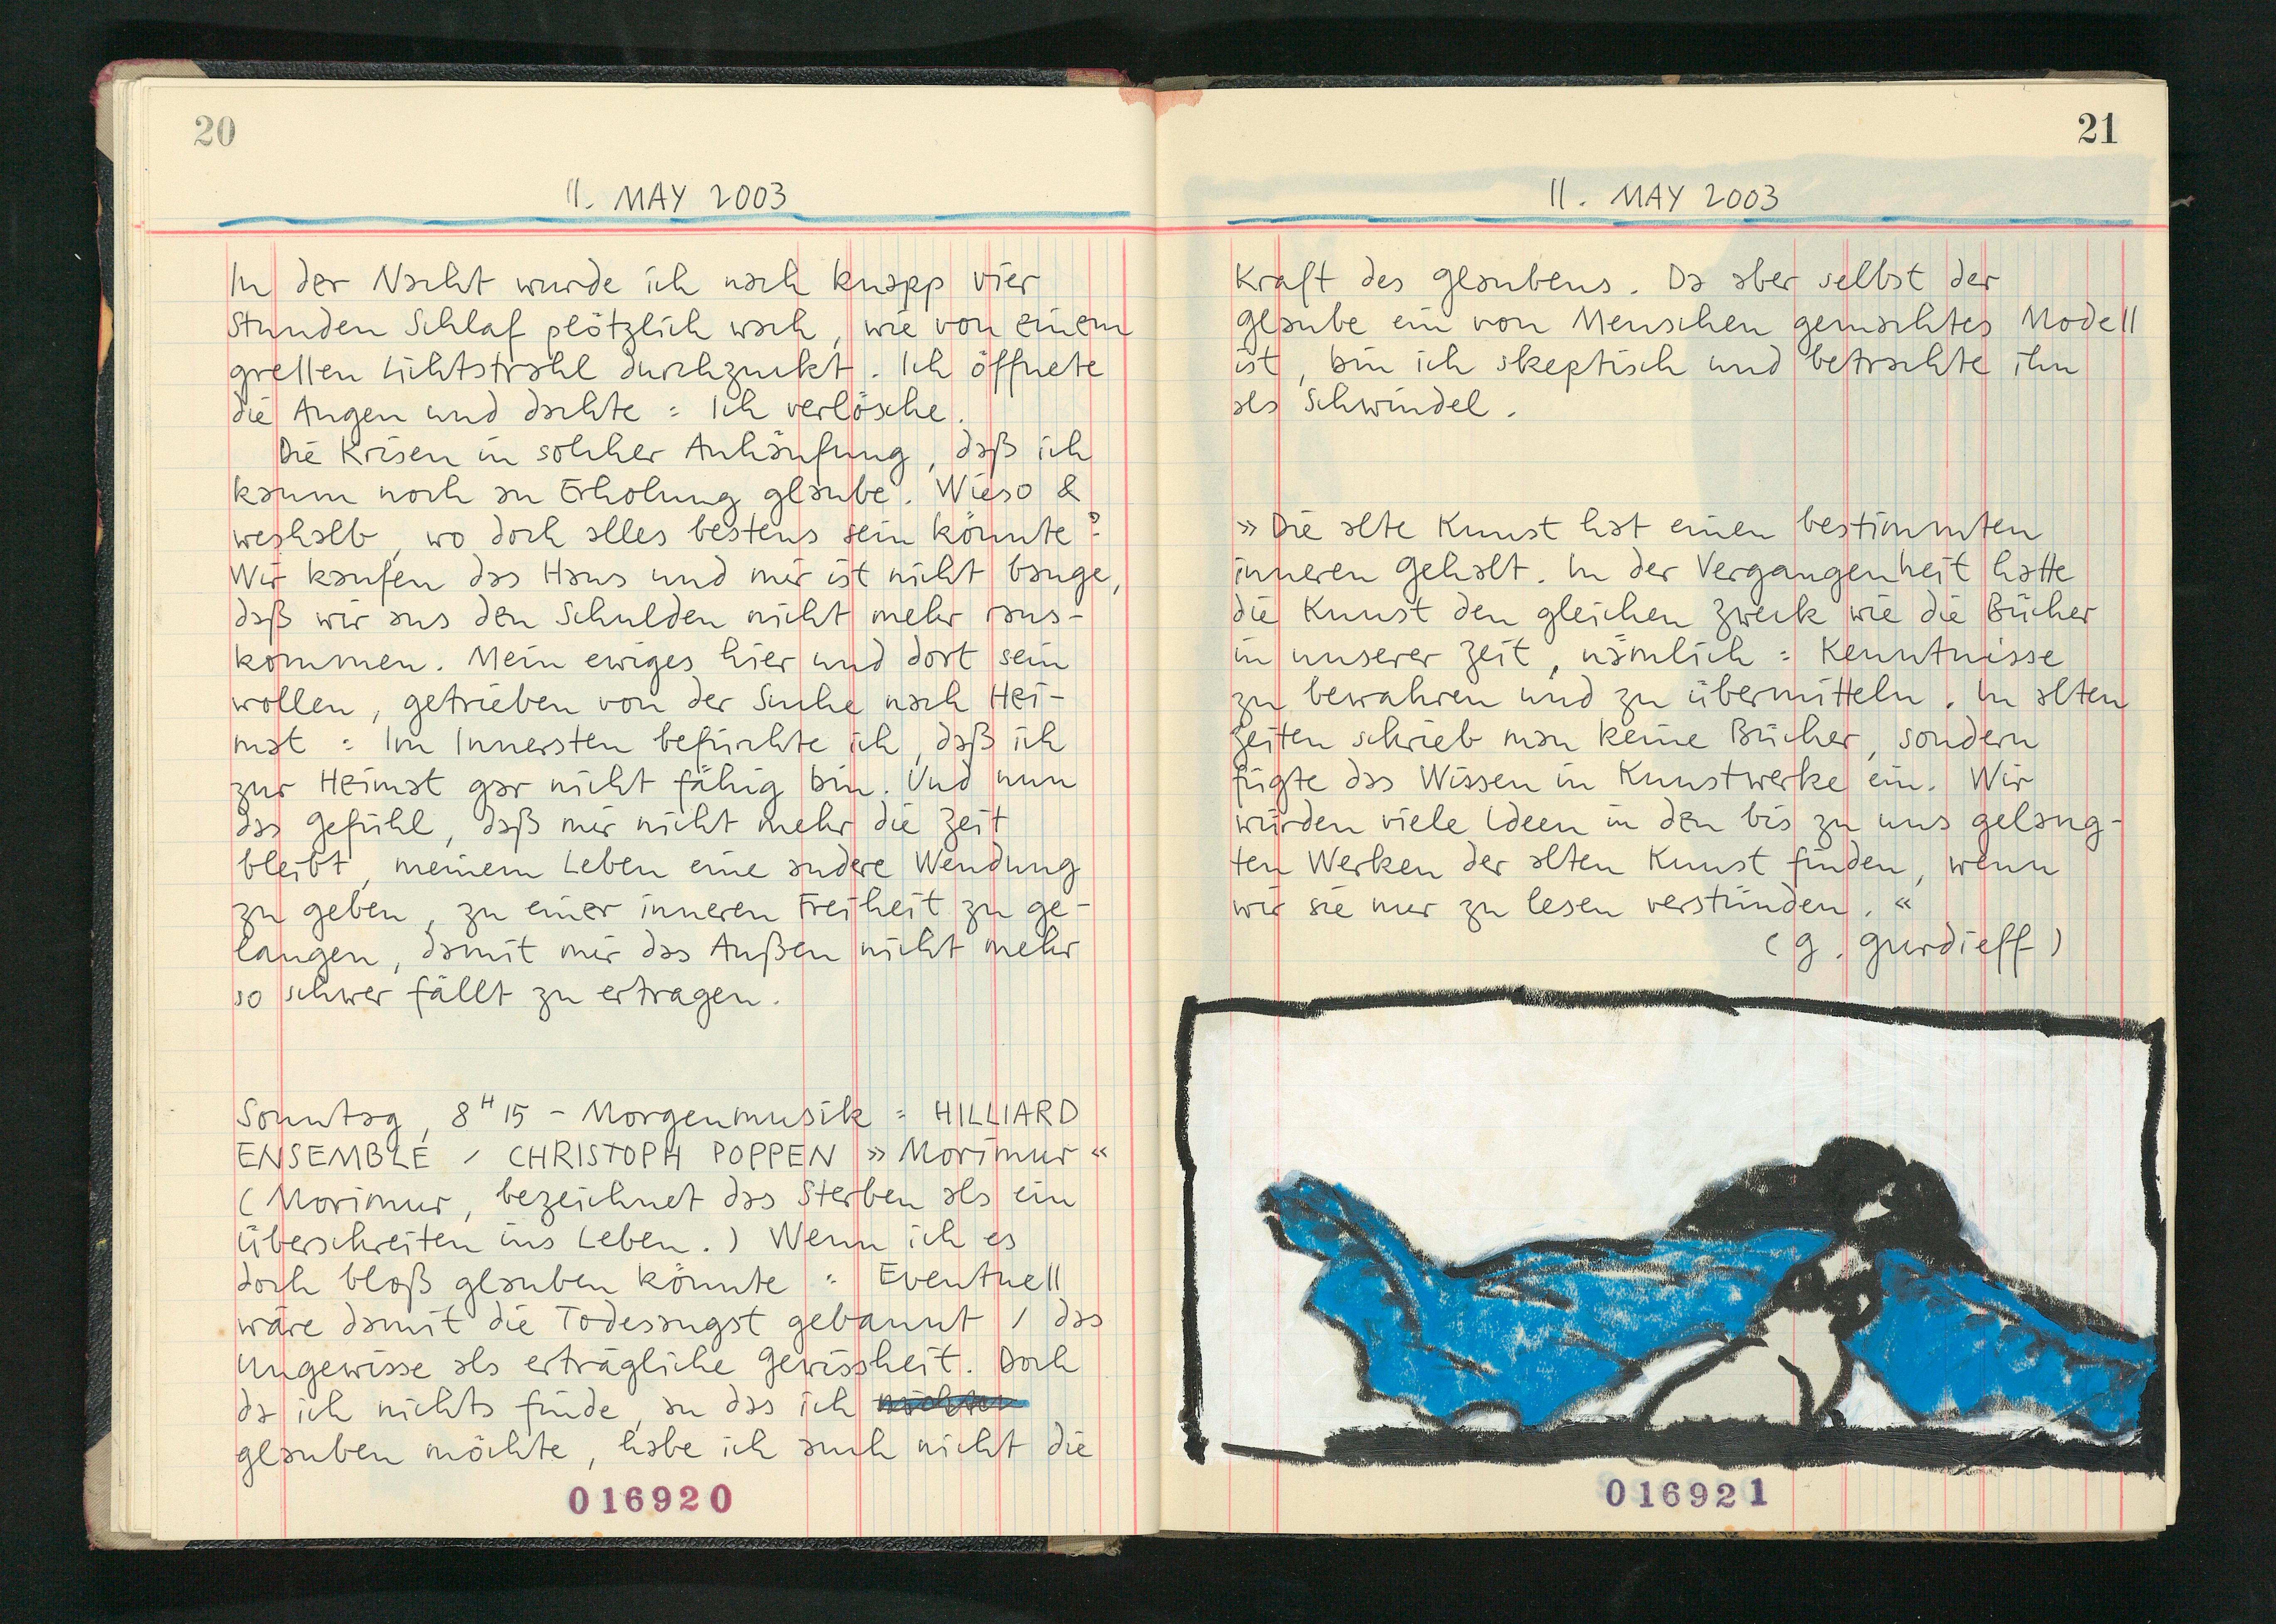 20
11. MAY 2003
In der Nacht wurde ich nach knapp vier
Stunden Schlaf plötzlich wach, wie von einem
grellen Lichtstrahl durchzuckt. Ich öffnete
die Augen und dachte: Ich verlösche.
Die Krisen in solcher Anhäufung, daß ich
kaum noch an Erholung glaube. Wieso &
weshalb, wo doch alles bestens sein könnte?
Wir kaufen das Haus und mir ist nicht bange,
daß wir aus den Schulden nicht mehr raus-
kommen. Mein ewiges hier und dort sein
wollen, getrieben von der Suche nach Hei-
mat: Im Innersten befürchte ich, daß ich
zur Heimat gar nicht fähig bin. Und nun
das Gefühl, daß mir nicht mehr die Zeit
bleibt, meinem Leben eine andere Wendung
zu geben, zu einer inneren Freiheit zu ge-
langen, damit mir das Außen nicht mehr
so schwer fällt zu ertragen.
Sonntag, 8H15 - Morgenmusik: HILLIARD
ENSEMBLE / CHRISTOPH POPPEN »Morimur«
(Morimur, bezeichnet das Sterben als ein
Überschreiten ins Leben.) Wenn ich es
doch bloß glauben könnte: Eventuell
wäre damit die Todesangst gebannt / das
Ungewisse als erträgliche Gewissheit. Doch
da ich nichts finde, an das ich
glauben möchte, habe ich auch nicht die
016920
21
11. MAY 2003
Kraft des Glaubens. Da aber selbst der
Glaube ein von Menschen gemachtes Modell
ist, bin ich skeptisch und betrachte ihn
als Schwindel.
»Die alte Kunst hat einen bestimmten
inneren Gehalt. In der Vergangenheit hatte
die Kunst den gleichen Zweck wie die Bücher
in unserer Zeit, nämlich: Kenntnisse
zu bewahren und zu übermitteln. In alten
Zeiten schrieb man keine Bücher, sondern
fügte das Wissen in Kunstwerke ein. Wir
würden viele Ideen in den bis zu uns gelang-
ten Werken der alten Kunst finden, wenn
wir sie nur zu lesen verstünden.«
(G. Gurdieff)
016921